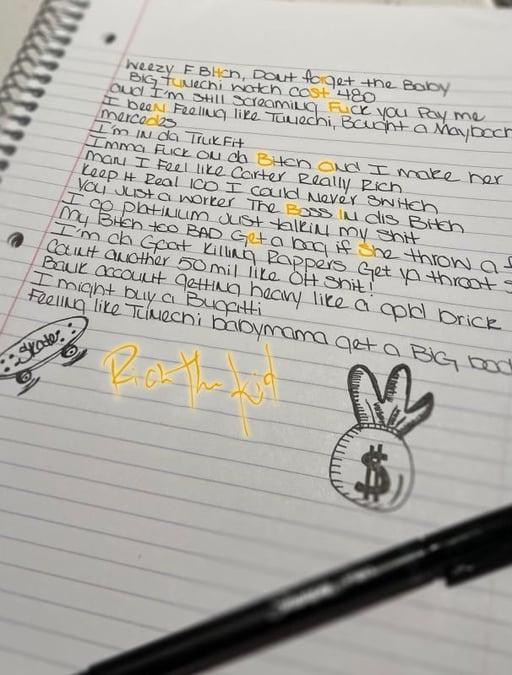 Weezy F Bitch, Dont forget the Baby
BIG Tunechi watch cost 480
and I'm still screaming Fuck you Pay me
I beeN Feeling like Tunechi, Bought a Maybach
mercedes
I'm IN da TrukFit
Imma Fuck on da Bitch and I make her
man I Feel like Carter Really Rich
Keep it Real 100 I could Never Snitch
You Just a worker The Boss In dis Bitch
I go platinum Just talkin my shit
My Bitch too BAD Get a bag if She throw a f
I'm da Goat Killing Rappers Get ya throat s
Count another 50 mil like Oh Shit!
Bank account getting heavy like a gold brick
I might buy a Bugatti
Feeling like Tunechi babymama get a BIG bod
Skater
Rich the kid
$